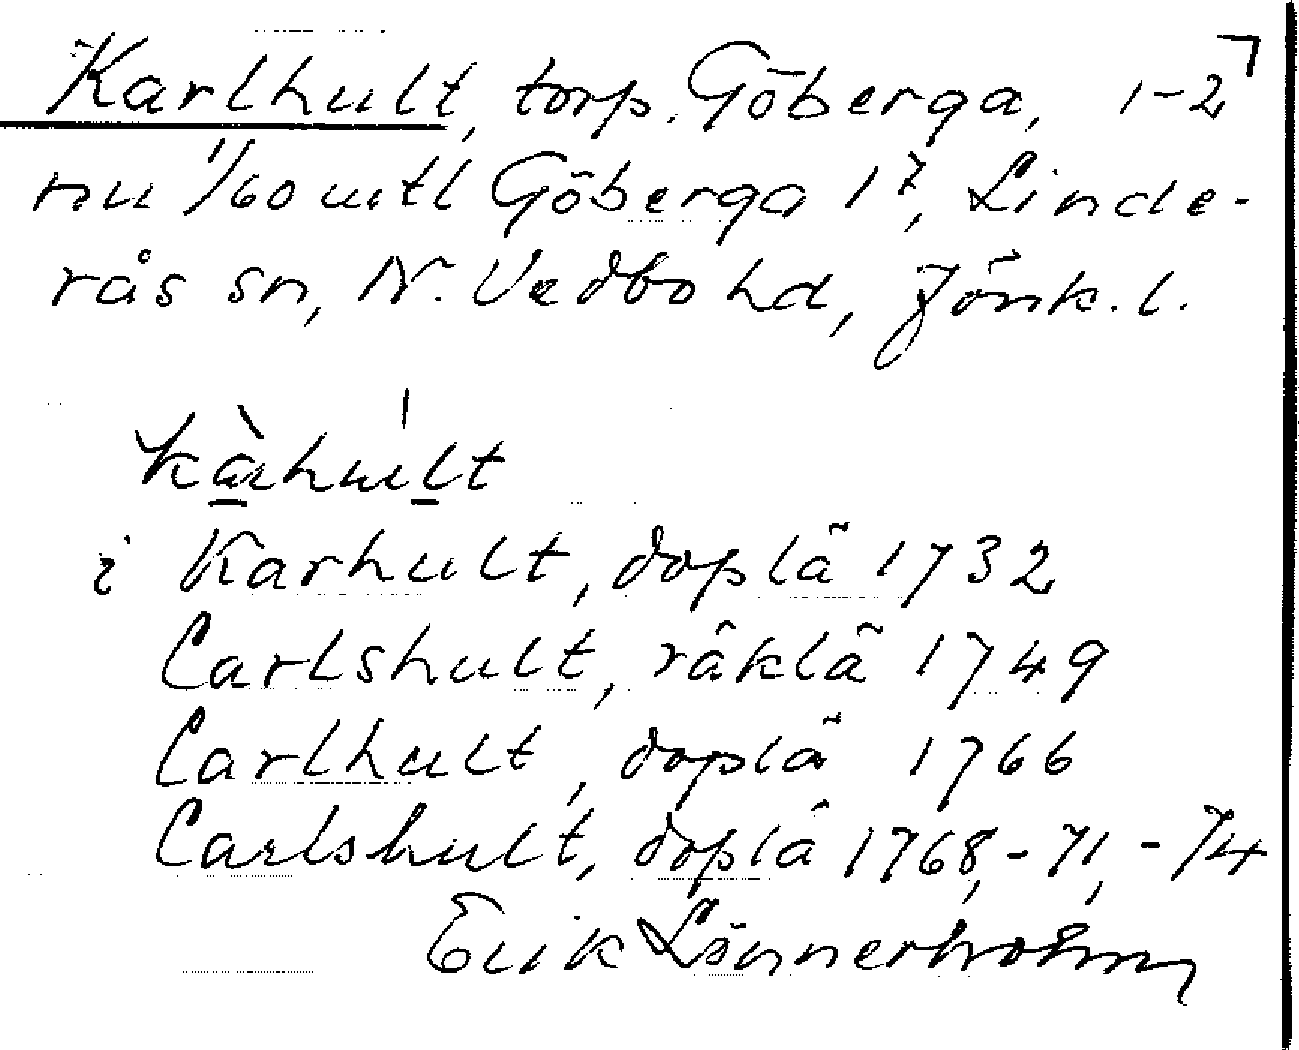 Karlhult, torp. Göberga, 1-2
nu 1/60 mtl Göberga 1⁷, Linde-
rås sn, N. Vedbo hd, Jönk. l.
kàrhul̍t
i Karhult, doplä 1732
Carlshult, räklä 1749
Carlhult, doplä 1766
Carlshult, doplä 1768,-71,-74
Erik Lönnerholm